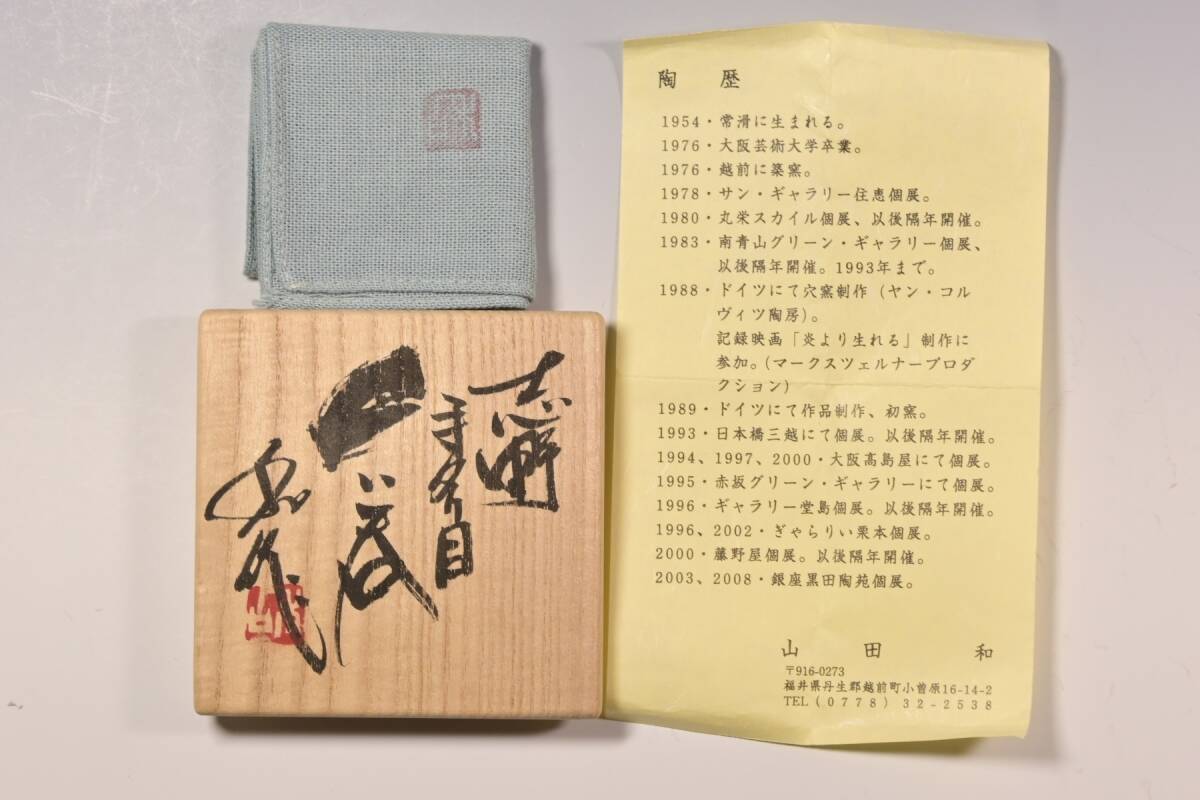 志野
手付目
ぐい呑
陶　歴
1954・常滑に生まれる。
1976・大阪芸術大学卒業。
1976・越前に築窯。
1978・サン・ギャラリー住恵個展。
1980・丸栄スカイル個展、以後隔年開催。
1983・南青山グリーン・ギャラリー個展、
以後隔年開催。1993年まで。
1988・ドイツにて穴窯制作（ヤン・コル
ヴィツ陶房）。
記録映画「炎より生れる」制作に
参加。（マークスツェルナープロダ
クション）
1989・ドイツにて作品制作、初窯。
1993・日本橋三越にて個展。以後隔年開催。
1994、1997、2000・大阪高島屋にて個展。
1995・赤坂グリーン・ギャラリーにて個展。
1996・ギャラリー堂島個展。以後隔年開催。
1996、2002・ぎゃらりい栗本個展。
2000・藤野屋個展。以後隔年開催。
2003、2008・銀座黒田陶苑個展。
山　田　　和
〒916-0273
福井県丹生郡越前町小曽原16-14-2
TEL（0778）32-2538